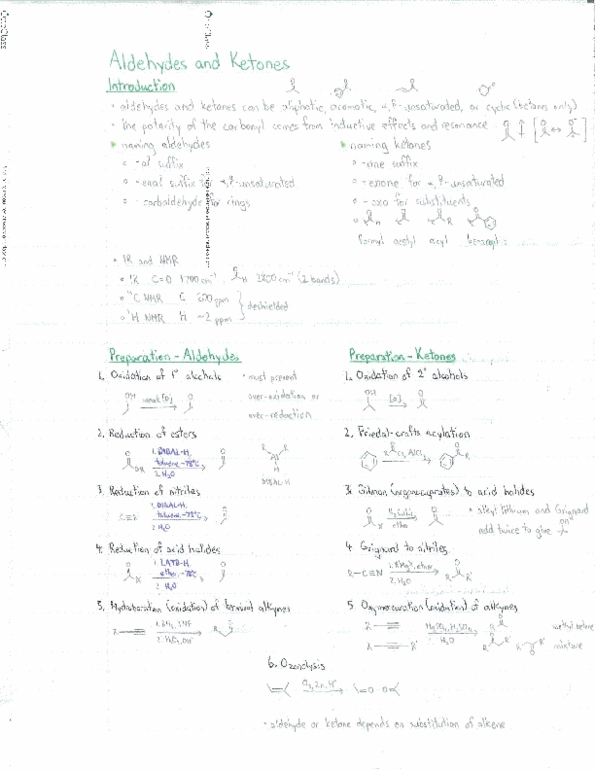 Aldehydes and Ketones
Introduction
• aldehydes and ketones can be aliphatic, aromatic, α,β-unsaturated, or cyclic (ketones only)
• the polarity of the carbonyl comes from inductive effects and resonance
naming aldehydes
-al suffix
-enal suffix for α,β-unsaturated
-carbaldehyde for rings
naming ketones
-one suffix
-enone for α,β-unsaturated
-oxo for substituents
formyl acetyl acyl benzoyl
• IR and NMR
IR C=O 1700 cm⁻¹ H 2800 cm⁻¹ (2 bands)
¹³C NMR C 200 ppm
¹H NMR H ~2 ppm
deshielded
Preparation - Aldehydes
1. Oxidation of 1° alcohols
• must prevent
over-oxidation or
over-reduction
OH weak [O] O
2. Reduction of esters
1. DIBAL-H,
toluene, -78°C
2. H₂O
OR
DIBAL-H
3. Reduction of nitriles
C≡N
1. DIBAL-H,
toluene, -78°C
2. H₂O
4. Reduction of acid halides
1. LATB-H
ether, -78°C
2. H₂O
5. Hydroboration (oxidation) of terminal alkynes
Preparation - Ketones
1. Oxidation of 2° alcohols
OH [O] O
2. Friedel-crafts acylation
AlCl₃
3. Gilman (organocuprates) to acid halides
ether
• alkyl lithium and Grignard
add twice to give
OH
4. Grignard to nitriles
R-C≡N
2. H₂O
5. Oxymercuration (oxidation) of alkynes
methyl ketone
mixture
6. Ozonolysis
• aldehyde or ketone depends on substitution of alkene